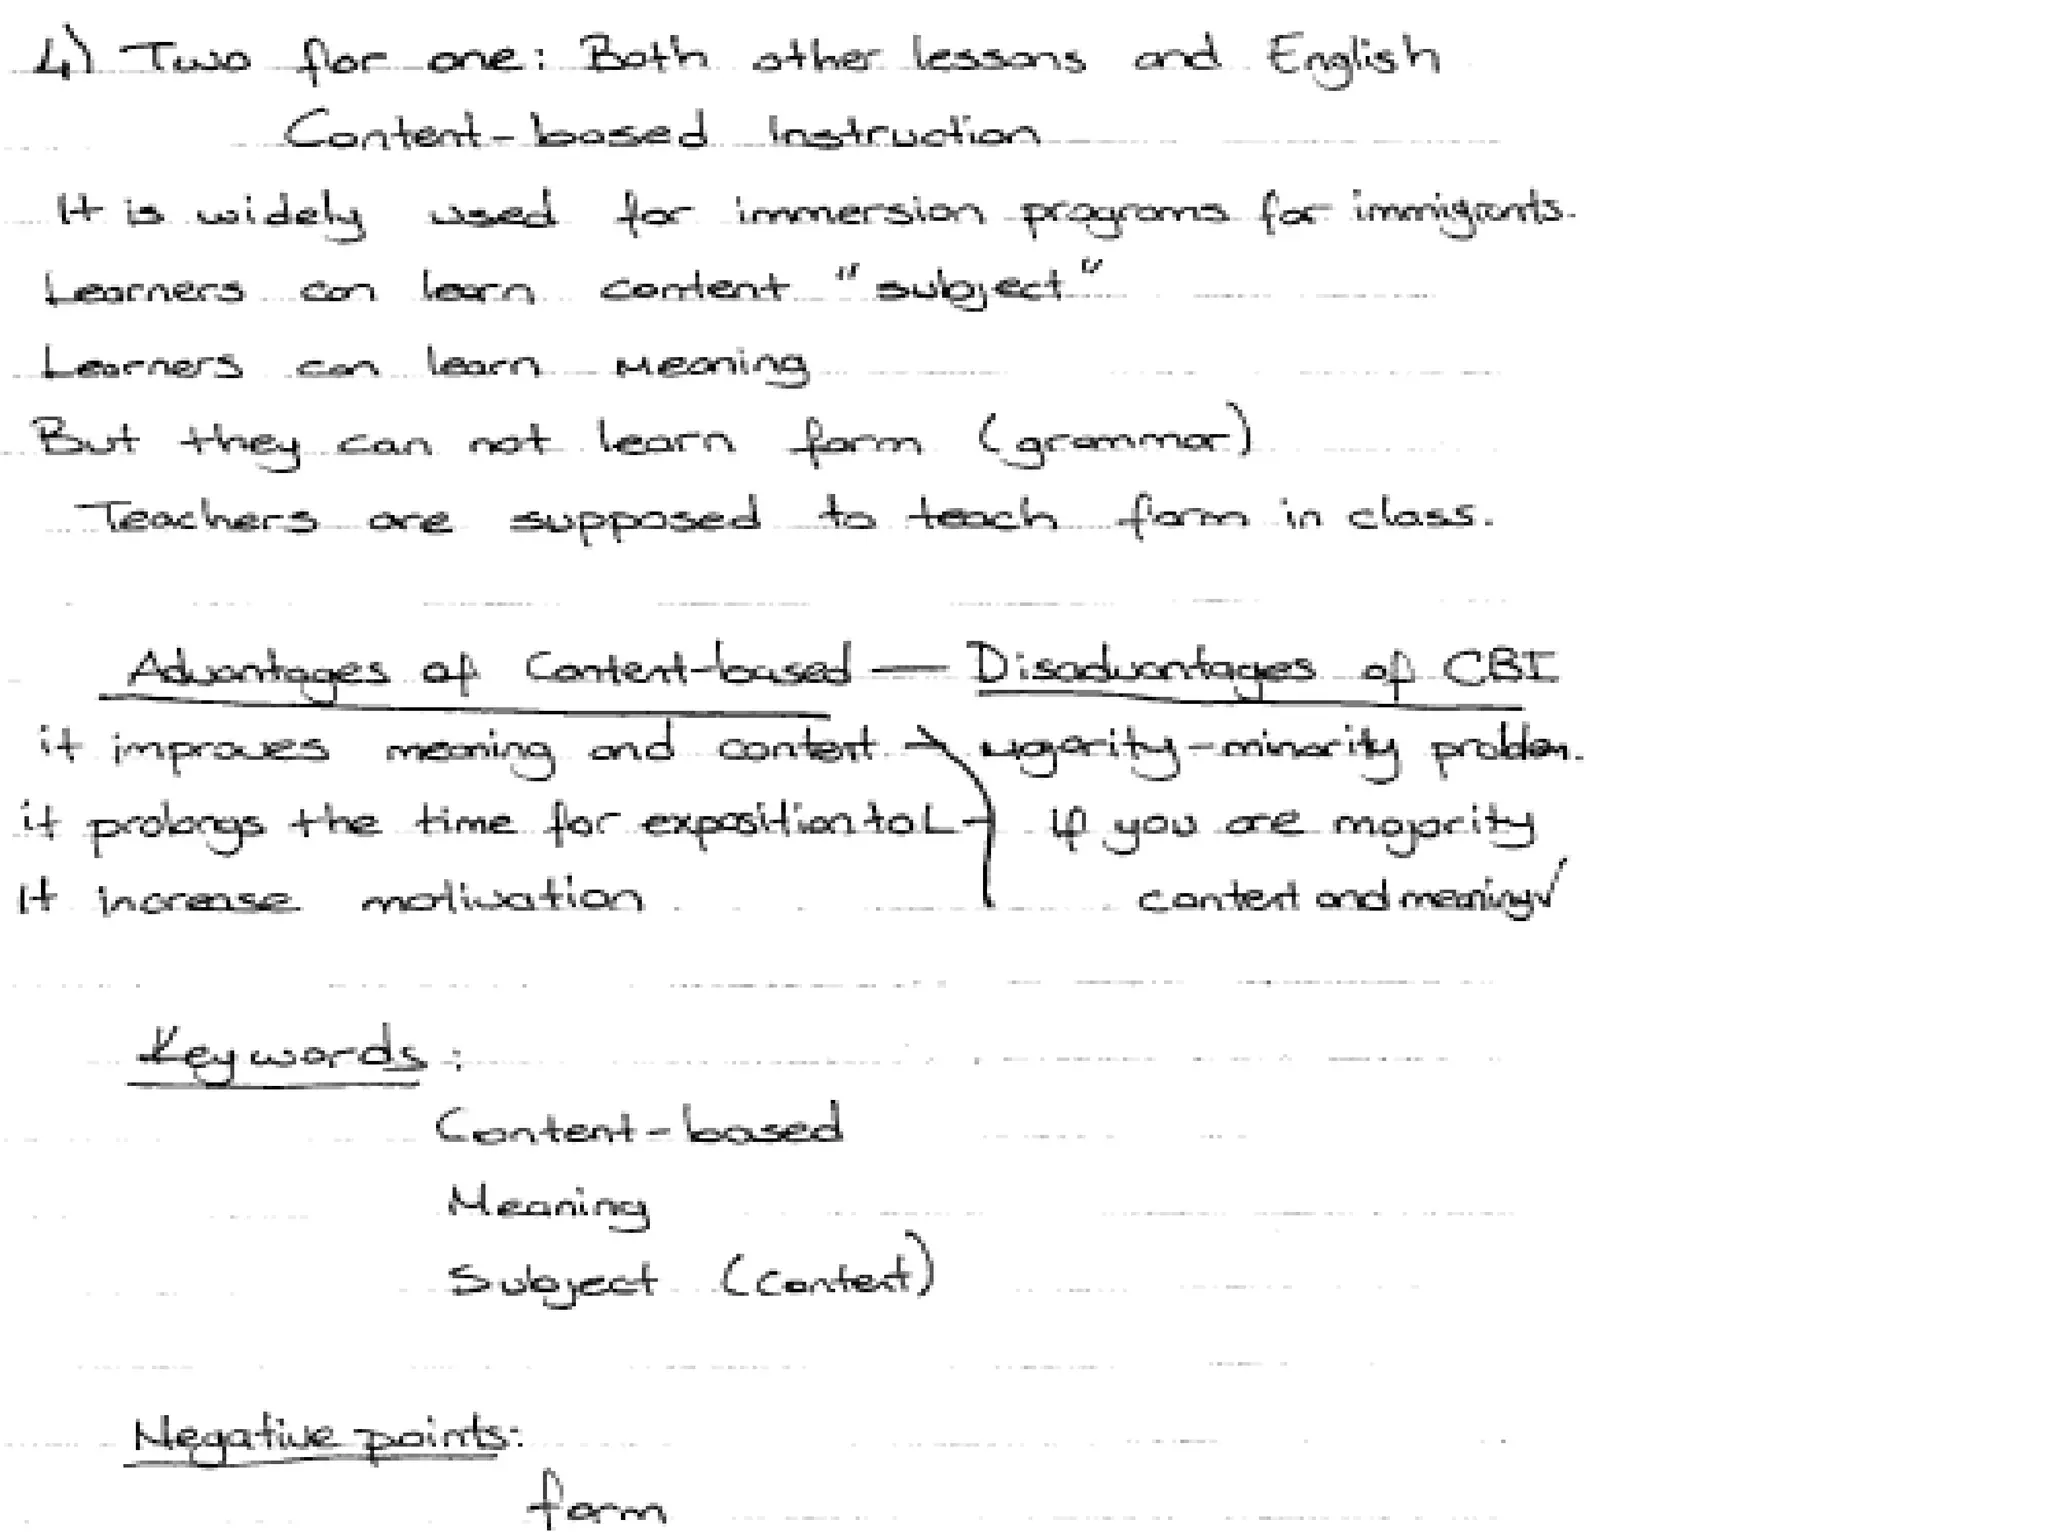 4) Two for one: Both other lessons and English
Content-based Instruction
It is widely used for immersion programs for immigrants.
Learners can learn content "subject"
Learners can learn Meaning
But they can not learn form (grammar)
Teachers are supposed to teach form in class.
Advantages of Content-based — Disadvantages of CBI
it improves meaning and content → Majority-minority problem.
it prolongs the time for exposition to L → If you are majority
It increase motivation content and meaning ✓
Key words:
Content-based
Meaning
Subject (Content)
Negative points:
form